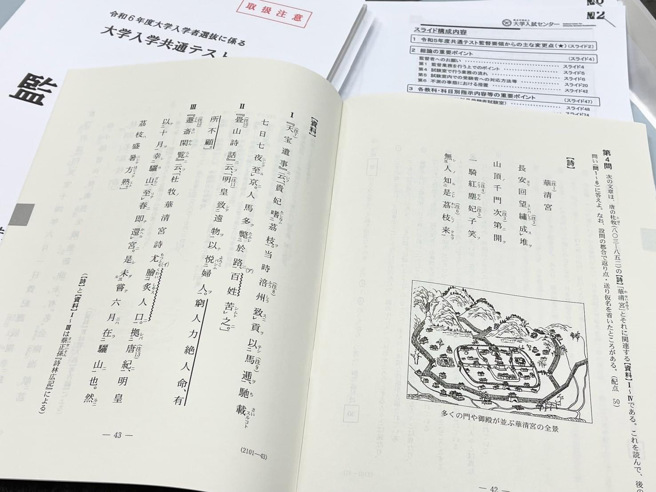 取扱注意
令和6年度大学入学者選抜に係る
大学入学共通テスト
監
大学入試センター
スライド構成内容
1 令和5年度共通テスト監督要領からの主な変更点(★)(スライド2)
2 総論の重要ポイント
(スライド4)
監督者へのお願い
スライド4
3 各教科・科目別指示内容等の重要ポイント
(スライド47)
第4問 次の文章は、唐の杜牧(八〇三―八五二)の【詩】「華清宮」とそれに関連する【資料】Ⅰ~Ⅳである。これを読んで、後の
問い(問1~6)に答えよ。なお、設問の都合で返り点・送り仮名を省いたところがある。(配点 50)
【詩】
華清宮
長安回望繡成堆
山頂千門次第開
一騎紅塵妃子笑
無人知是茘枝来
多くの門や御殿が並ぶ華清宮の全景
― 42
【資料】
Ⅰ 『天宝遺事』云、「貴妃嗜茘枝。当時涪州致貢、以馬逓馳載、
七日七夜至京。人馬多斃於路、百姓苦之。」
Ⅱ 『畳山詩話』云、「明皇致遠物以悦婦人。窮人力絶人命、有
所不顧。」
Ⅲ 『遯斎閑覧』云、「杜牧華清宮詩尤膾炙人口。拠唐紀、明皇
以十月幸驪山、至春即還宮。是未嘗六月在驪山也。然
茘枝盛暑方熟。」
(【詩】と【資料】Ⅰ~Ⅲは蔡正孫『詩林広記』による)
― 43 ―
(2101―43)